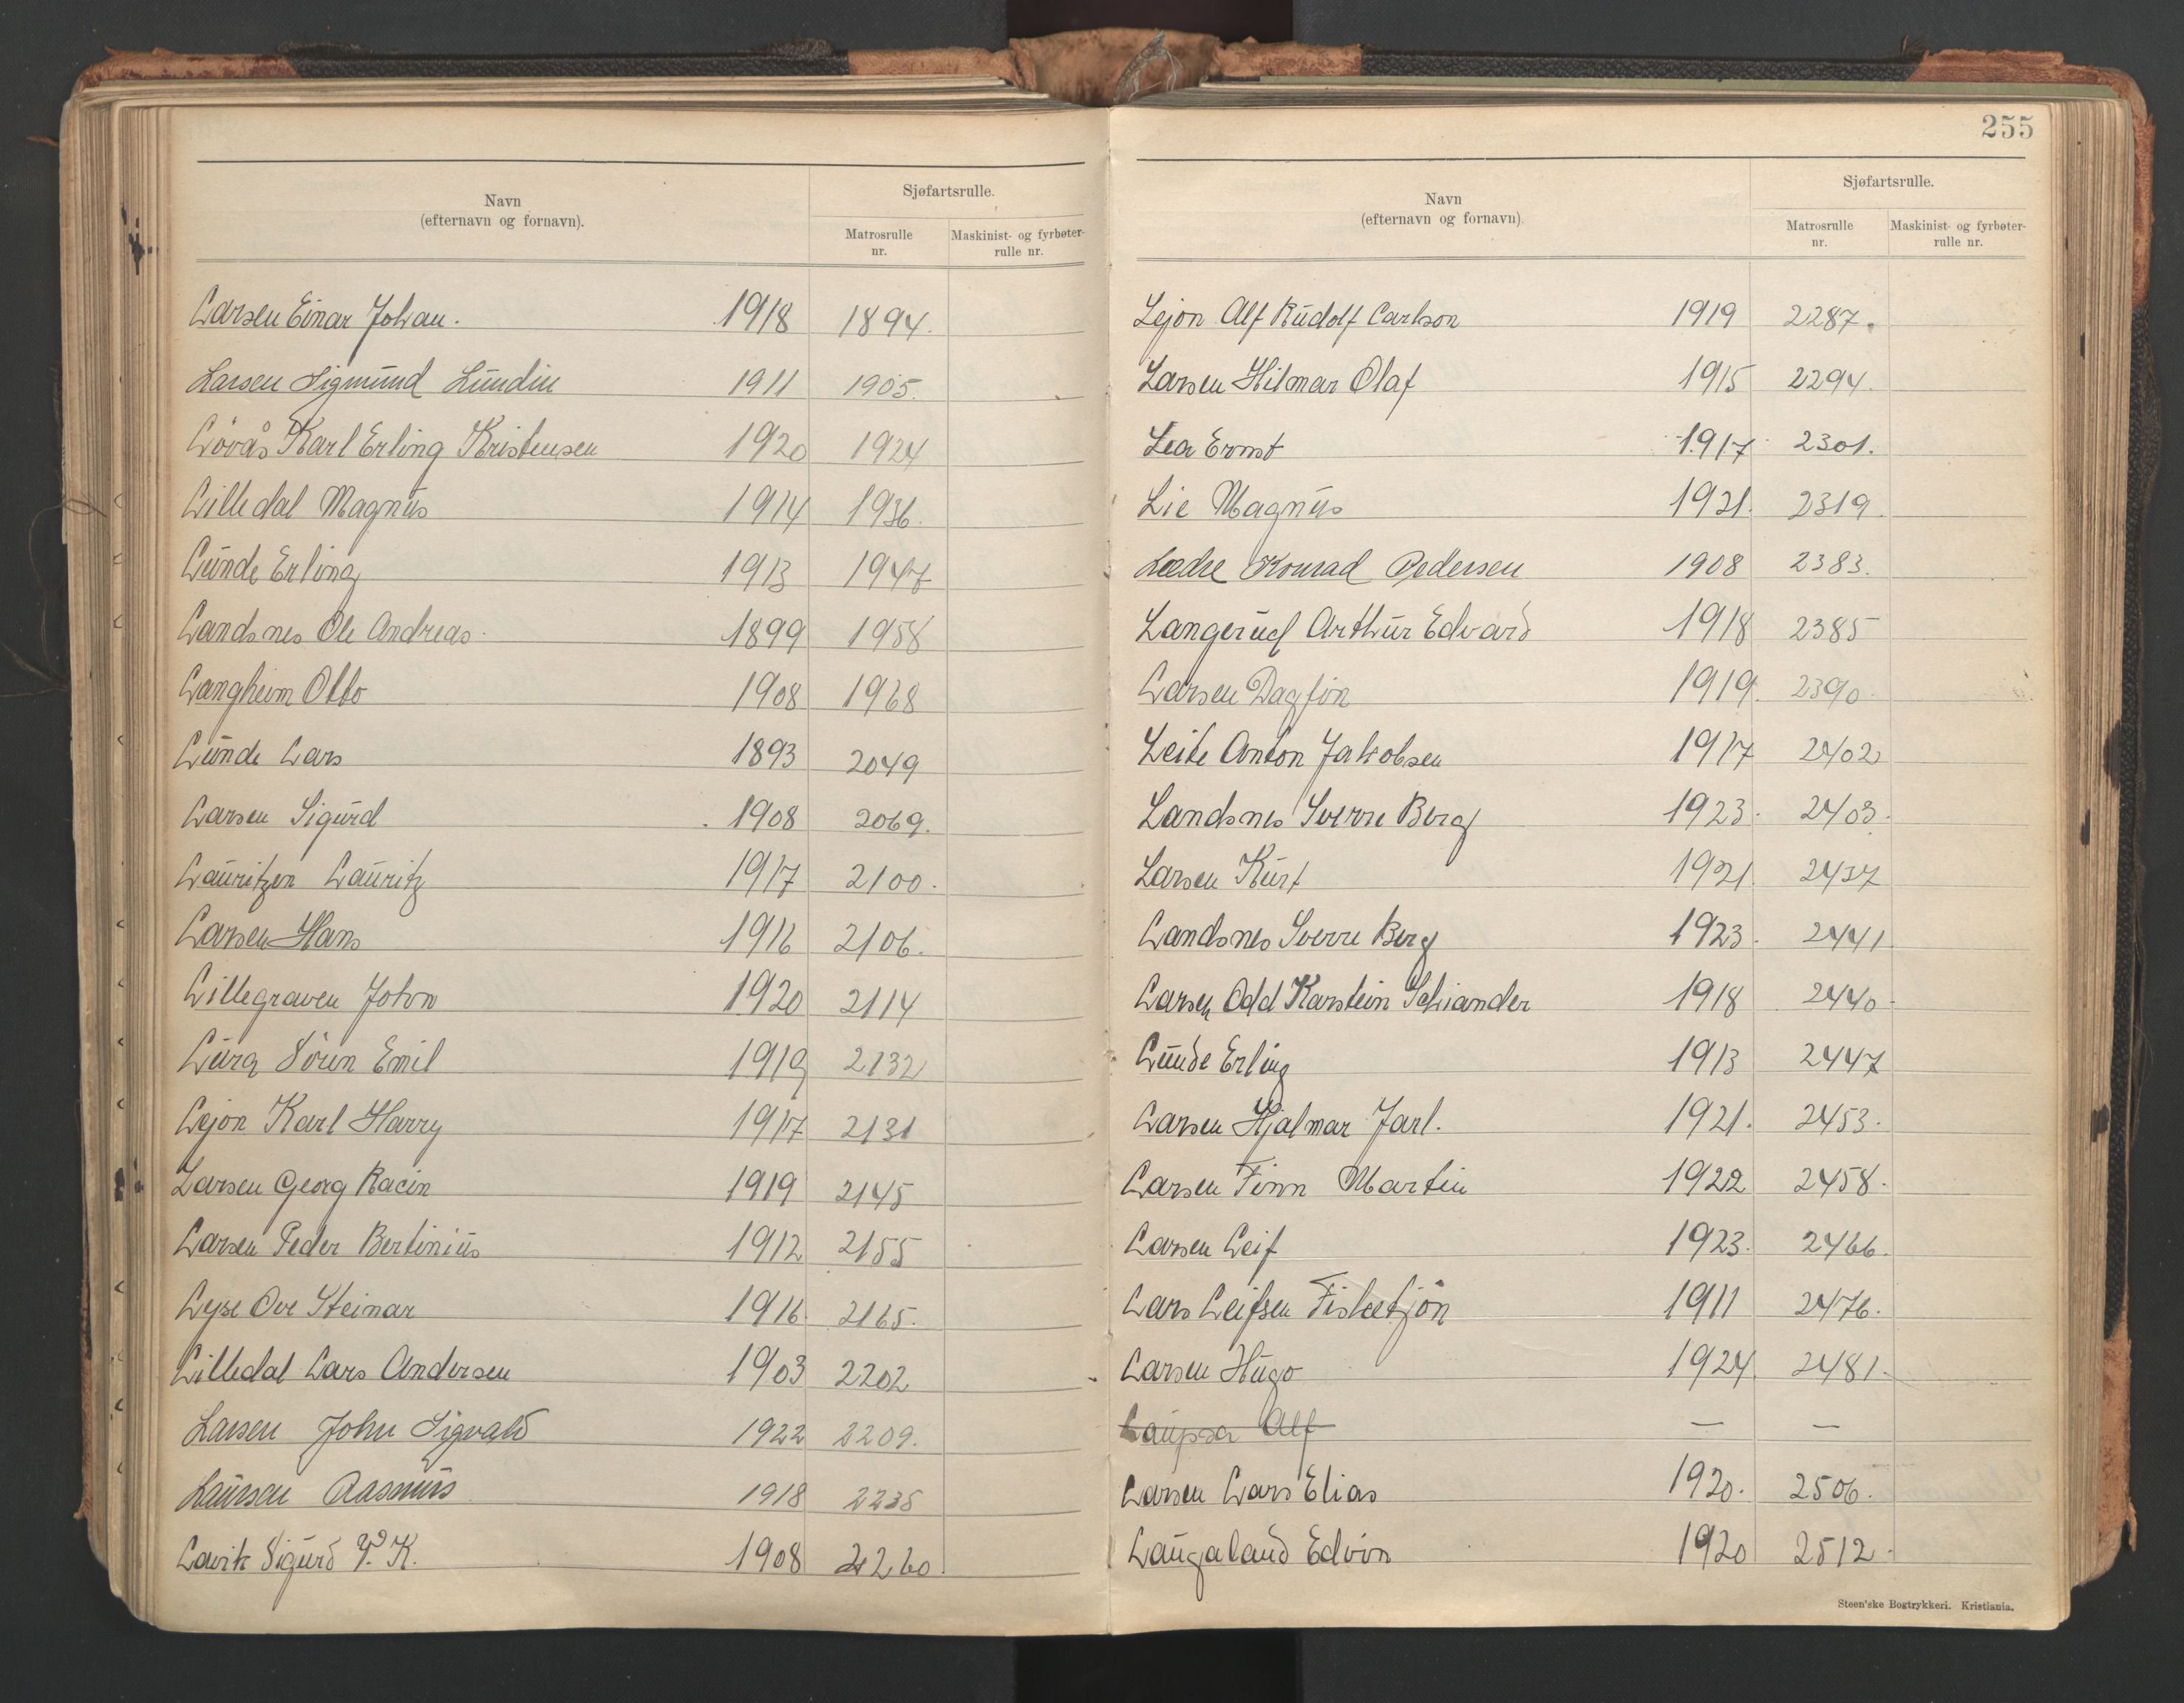 Navn
(efternavn og fornavn).
Sjøfartsrulle.
Matrosrulle nr.
Maskinist- og fyrbøter-rulle nr.
Larsen Einar Johan. 1918 1894.
Larsen Sigmund Lundin 1911 1905.
Løvås Karl Erling Kristensen 1920 1924
Lilledal Magnus 1914 1936.
Lunde Erling 1913 1947
Landsnes Ole Andreas 1899 1958
Langheim Otto 1908 1968
Lunde Lars 1893 2049
Larsen Sigurd 1908 2069.
Lauritzen Lauritz 1917 2100.
Larsen Hans 1916 2106.
Lillegraven John 1920 2114
Lura Sören Emil 1919 2132
Lejon Karl Harry 1917 2131
Larsen Georg Racin 1919 2145
Larsen Peder Bertinius 1912 2155
Lyse Ove Steinar 1916 2165.
Lilledal Lars Andersen 1903 2202
Larsen John Sigvald 1922 2209.
Laursen Rasmus 1918 2235
Lavik Sigurd V. K. 1908 2260
255
Navn
(efternavn og fornavn)
Sjøfartsrulle.
Matrosrulle nr.
Maskinist- og fyrbøter-rulle nr.
Lejon Alf Rudolf Carlson 1919 2287.
Larsen Hilmar Olaf 1915 2294.
Lea Ernst 1917 2301.
Lie Magnus 1921. 2319.
Lædre Konrad Pedersen 1908 2383.
Langerud Arthur Edvard 1918 2385
Larsen Dagfin 1919. 2390
Leite Anton Jakobsen 1917 2402
Landsnes Sverre Berg 1923. 2403.
Larsen Kurt 1921. 2437
Landsnes Sverre Berg 1923. 2441
Larsen Odd Karstein Schiander 1918 2440
Lunde Erling 1913 2447
Larsen Hjalmar Jarl. 1921. 2453.
Larsen Finn Martin 1922 2458.
Larsen Leif 1923. 2466.
Lars Leifsen Fisketjön 1911 2476.
Larsen Hugo 1924. 2481.
Alf — —
Larsen Lars Elias 1920. 2506.
Laugaland Edvin 1920 2512.
Steen'ske Bogtrykkeri. Kristiania.